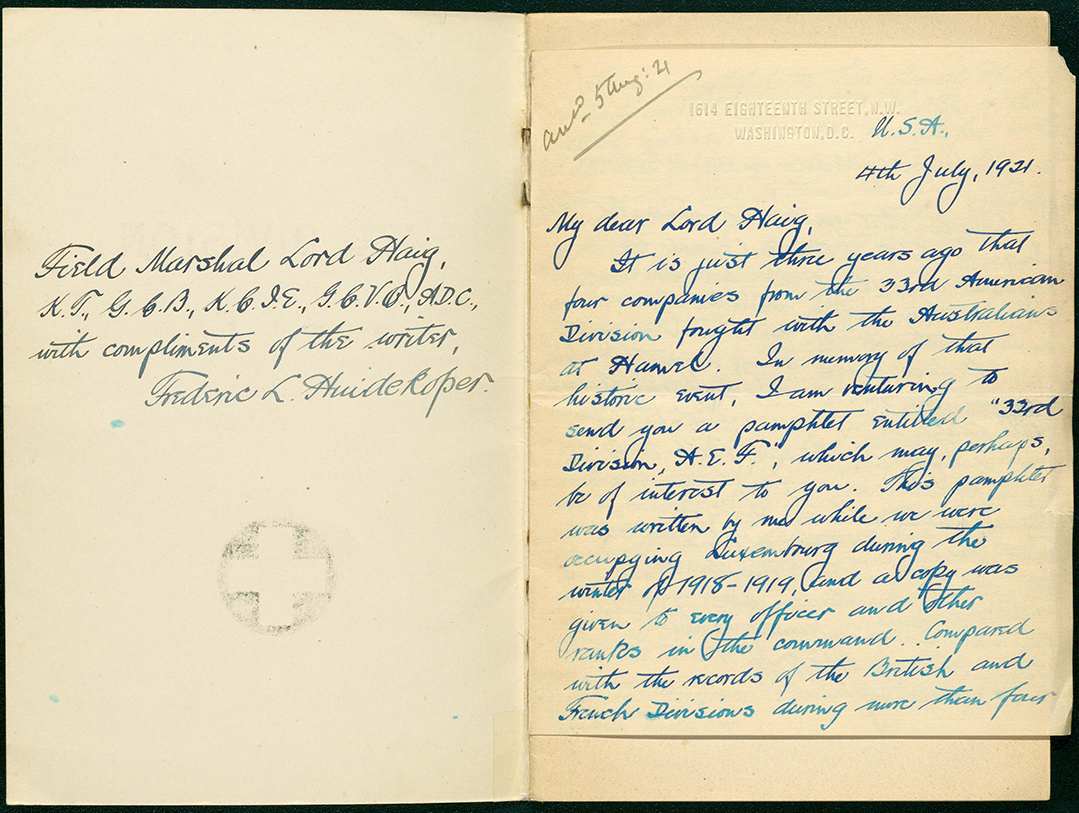 Field Marshal Lord Haig,
K.T., G.C.B., K.C.I.E., G.C.V.O., A.D.C.,
with compliments of the writer,
Frederic L. Huidekoper.
ansd. 5 Aug: 21
1614 EIGHTEENTH STREET, N.W.
WASHINGTON, D.C. U.S.A.,
4th July, 1921.
My dear Lord Haig,
It is just three years ago that
four companies from the 33rd American
Division fought with the Australians
at Hamel. In memory of that
historic event, I am venturing to
send you a pamphlet entitled "33rd
Division, A.E.F.", which may, perhaps,
be of interest to you. This pamphlet
was written by me while we were
occupying Luxembourg during the
winter of 1918-1919, and a copy was
given to every officer and other
ranks in the command. Compared
with the records of the British and
French Divisions during more than four